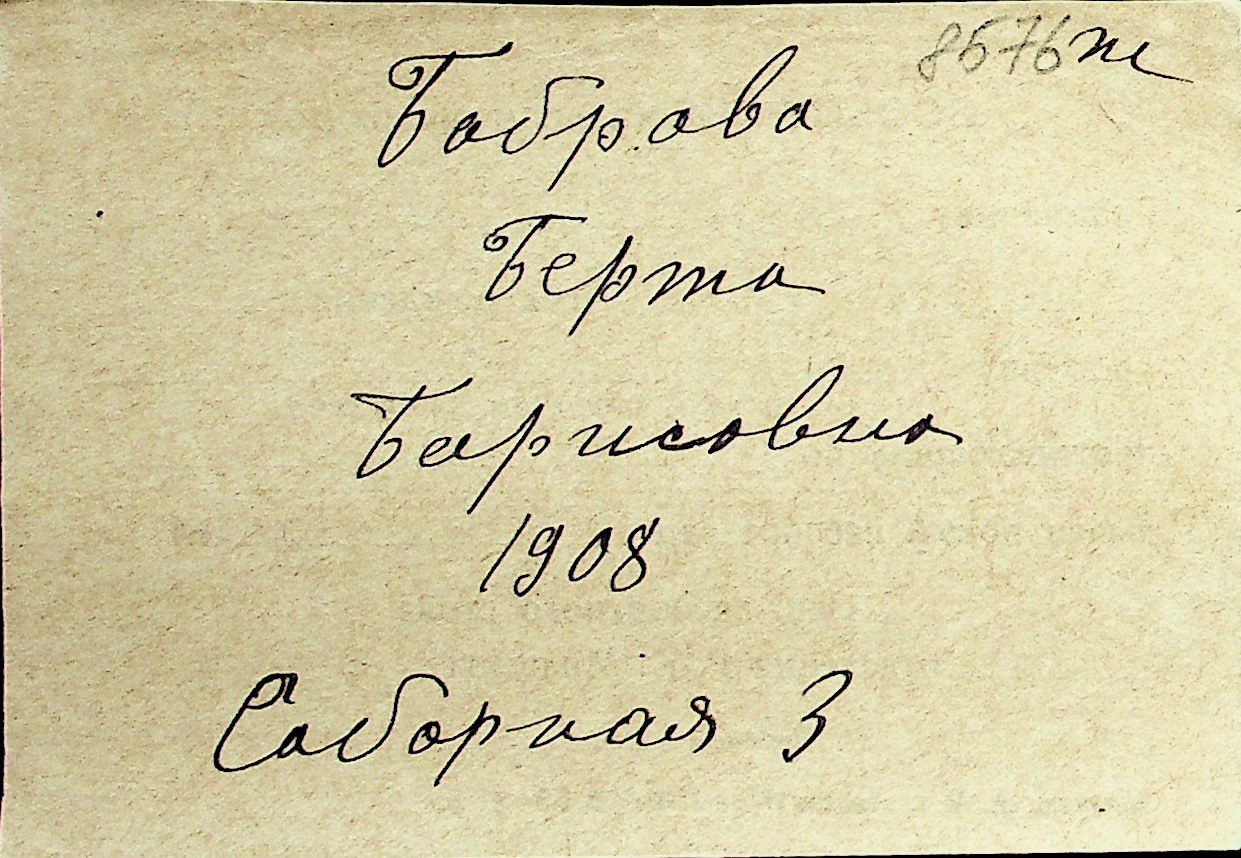 8576 ж
Боброва
Берта
Борисовна
1908
Соборная 3